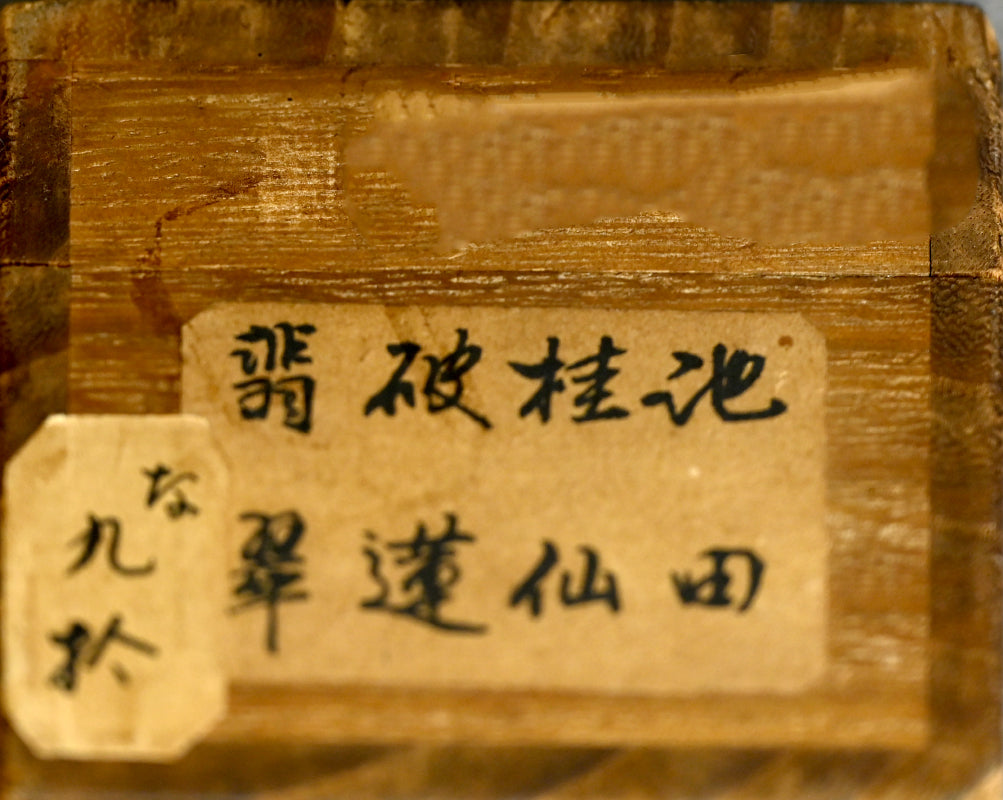 池田
桂仙
破蓮
翡翠
な
九